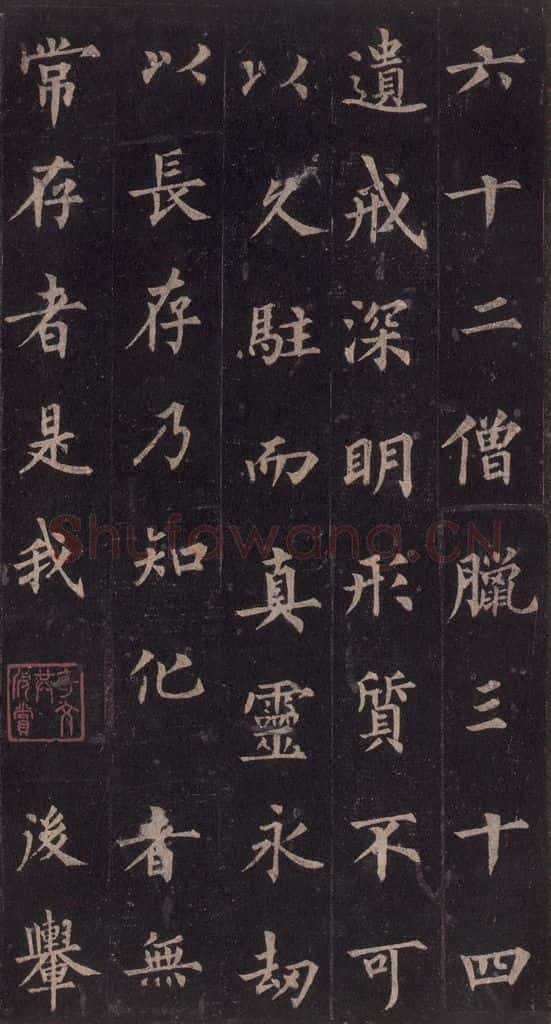 六十二僧臘三十四
遺戒深明形質不可
以久駐而真靈永劫
以長存乃知化者無
常存者是我後轝
奇文共欣賞
Shufawang.CN